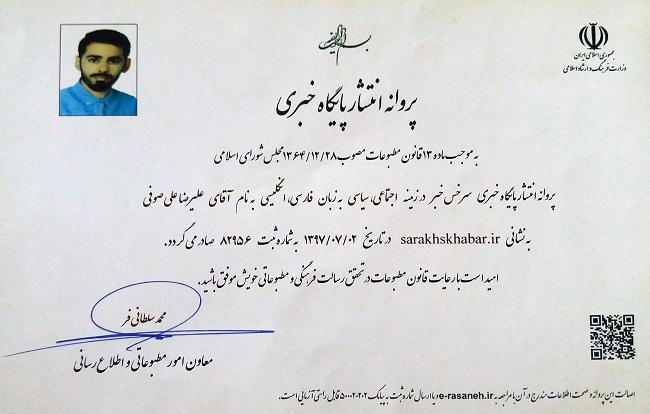 جمهوری اسلامی ایران
وزارت فرهنگ و ارشاد اسلامی
پروانه انتشار پایگاه خبری
به موجب ماده ۱۳ قانون مطبوعات مصوب ۱۳۶۴/۱۲/۲۸ مجلس شورای اسلامی
پروانه انتشار پایگاه خبری سرخس خبر در زمینه اجتماعی، سیاسی به زبان فارسی، انگلیسی به نام آقای علیرضا علی صوفی
به نشانی sarakhskhabar.ir در تاریخ ۱۳۹۷/۰۷/۰۲ به شماره ثبت ۸۲۹۵۶ صادر می گردد.
امید است با رعایت قانون مطبوعات در تحقق رسالت فرهنگی و مطبوعاتی خویش موفق باشید.
محمد سلطانی فر
معاون امور مطبوعاتی و اطلاع رسانی
اصالت این پروانه و صحت اطلاعات مندرج در آن با مراجعه به e-rasaneh.ir و یا ارسال شماره ثبت به پیامک ۵۰۰۰۲۰۲۰۲ قابل راستی آزمایی است.